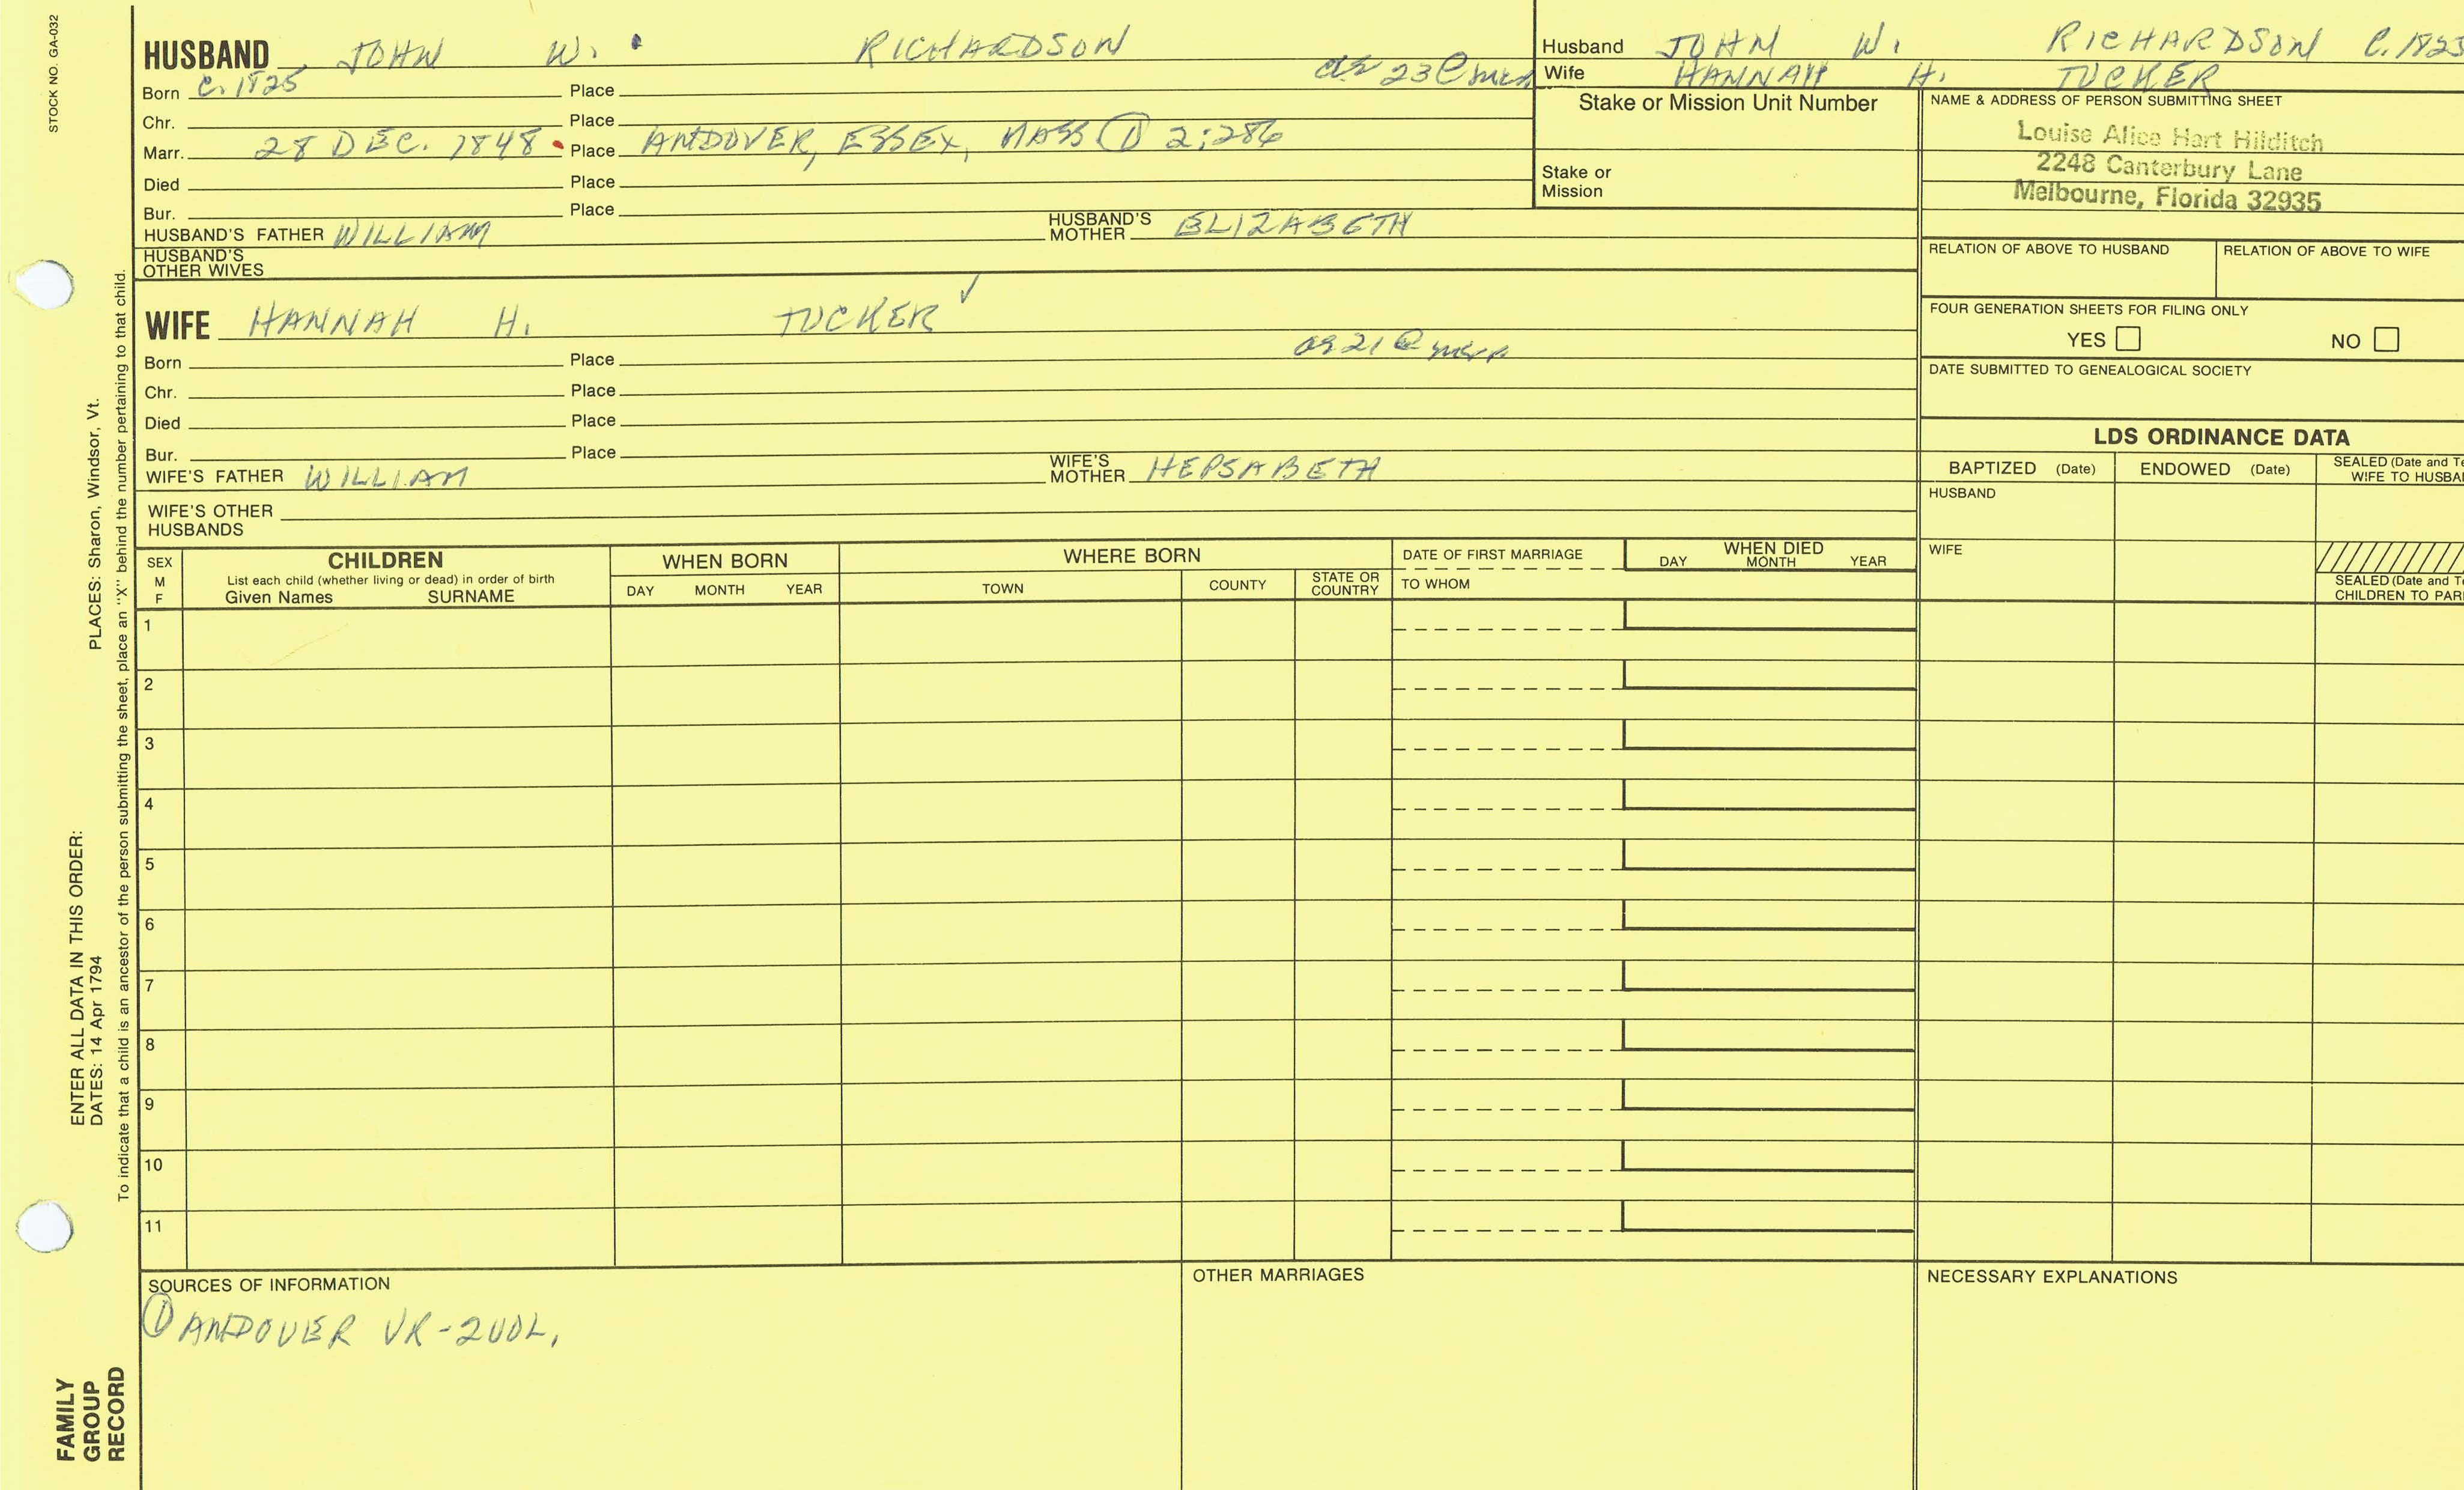 STOCK NO. GA-032
HUSBAND JOHN W. RICHARDSON
Born C. 1825 Place
ag 23 @
Chr. Place
Marr. 28 DEC. 1848 Place ANDOVER, ESSEX, MASS ① 2:286
Died Place
Bur. Place
HUSBAND'S FATHER WILLIAM HUSBAND'S MOTHER ELIZABETH
HUSBAND'S OTHER WIVES
WIFE HANNAH H. TUCKER ✓
ag 21 @ marr
Born Place
Chr. Place
Died Place
Bur. Place
WIFE'S FATHER WILLIAM WIFE'S MOTHER HEPSABETH
WIFE'S OTHER HUSBANDS
Husband JOHN W. RICHARDSON C. 1825
Wife HANNAH H. TUCKER
Stake or Mission Unit Number
Stake or Mission
NAME & ADDRESS OF PERSON SUBMITTING SHEET
Louise Alice Hart Hilditch
2248 Canterbury Lane
Melbourne, Florida 32935
RELATION OF ABOVE TO HUSBAND RELATION OF ABOVE TO WIFE
FOUR GENERATION SHEETS FOR FILING ONLY
YES NO
DATE SUBMITTED TO GENEALOGICAL SOCIETY
LDS ORDINANCE DATA
BAPTIZED (Date) ENDOWED (Date) SEALED (Date and Te
WIFE TO HUSBA
HUSBAND
WIFE
SEALED (Date and Te
CHILDREN TO PAR
SEX
M
F
CHILDREN
List each child (whether living or dead) in order of birth
Given Names SURNAME
WHEN BORN
DAY MONTH YEAR
WHERE BORN
TOWN COUNTY STATE OR COUNTRY
DATE OF FIRST MARRIAGE
TO WHOM
WHEN DIED
DAY MONTH YEAR
1
2
3
4
5
6
7
8
9
10
11
SOURCES OF INFORMATION
① ANDOVER VR-2VOL.
OTHER MARRIAGES
NECESSARY EXPLANATIONS
ENTER ALL DATA IN THIS ORDER:
DATES: 14 Apr 1794 PLACES: Sharon, Windsor, Vt.
To indicate that a child is an ancestor of the person submitting the sheet, place an "X" behind the number pertaining to that child.
FAMILY
GROUP
RECORD